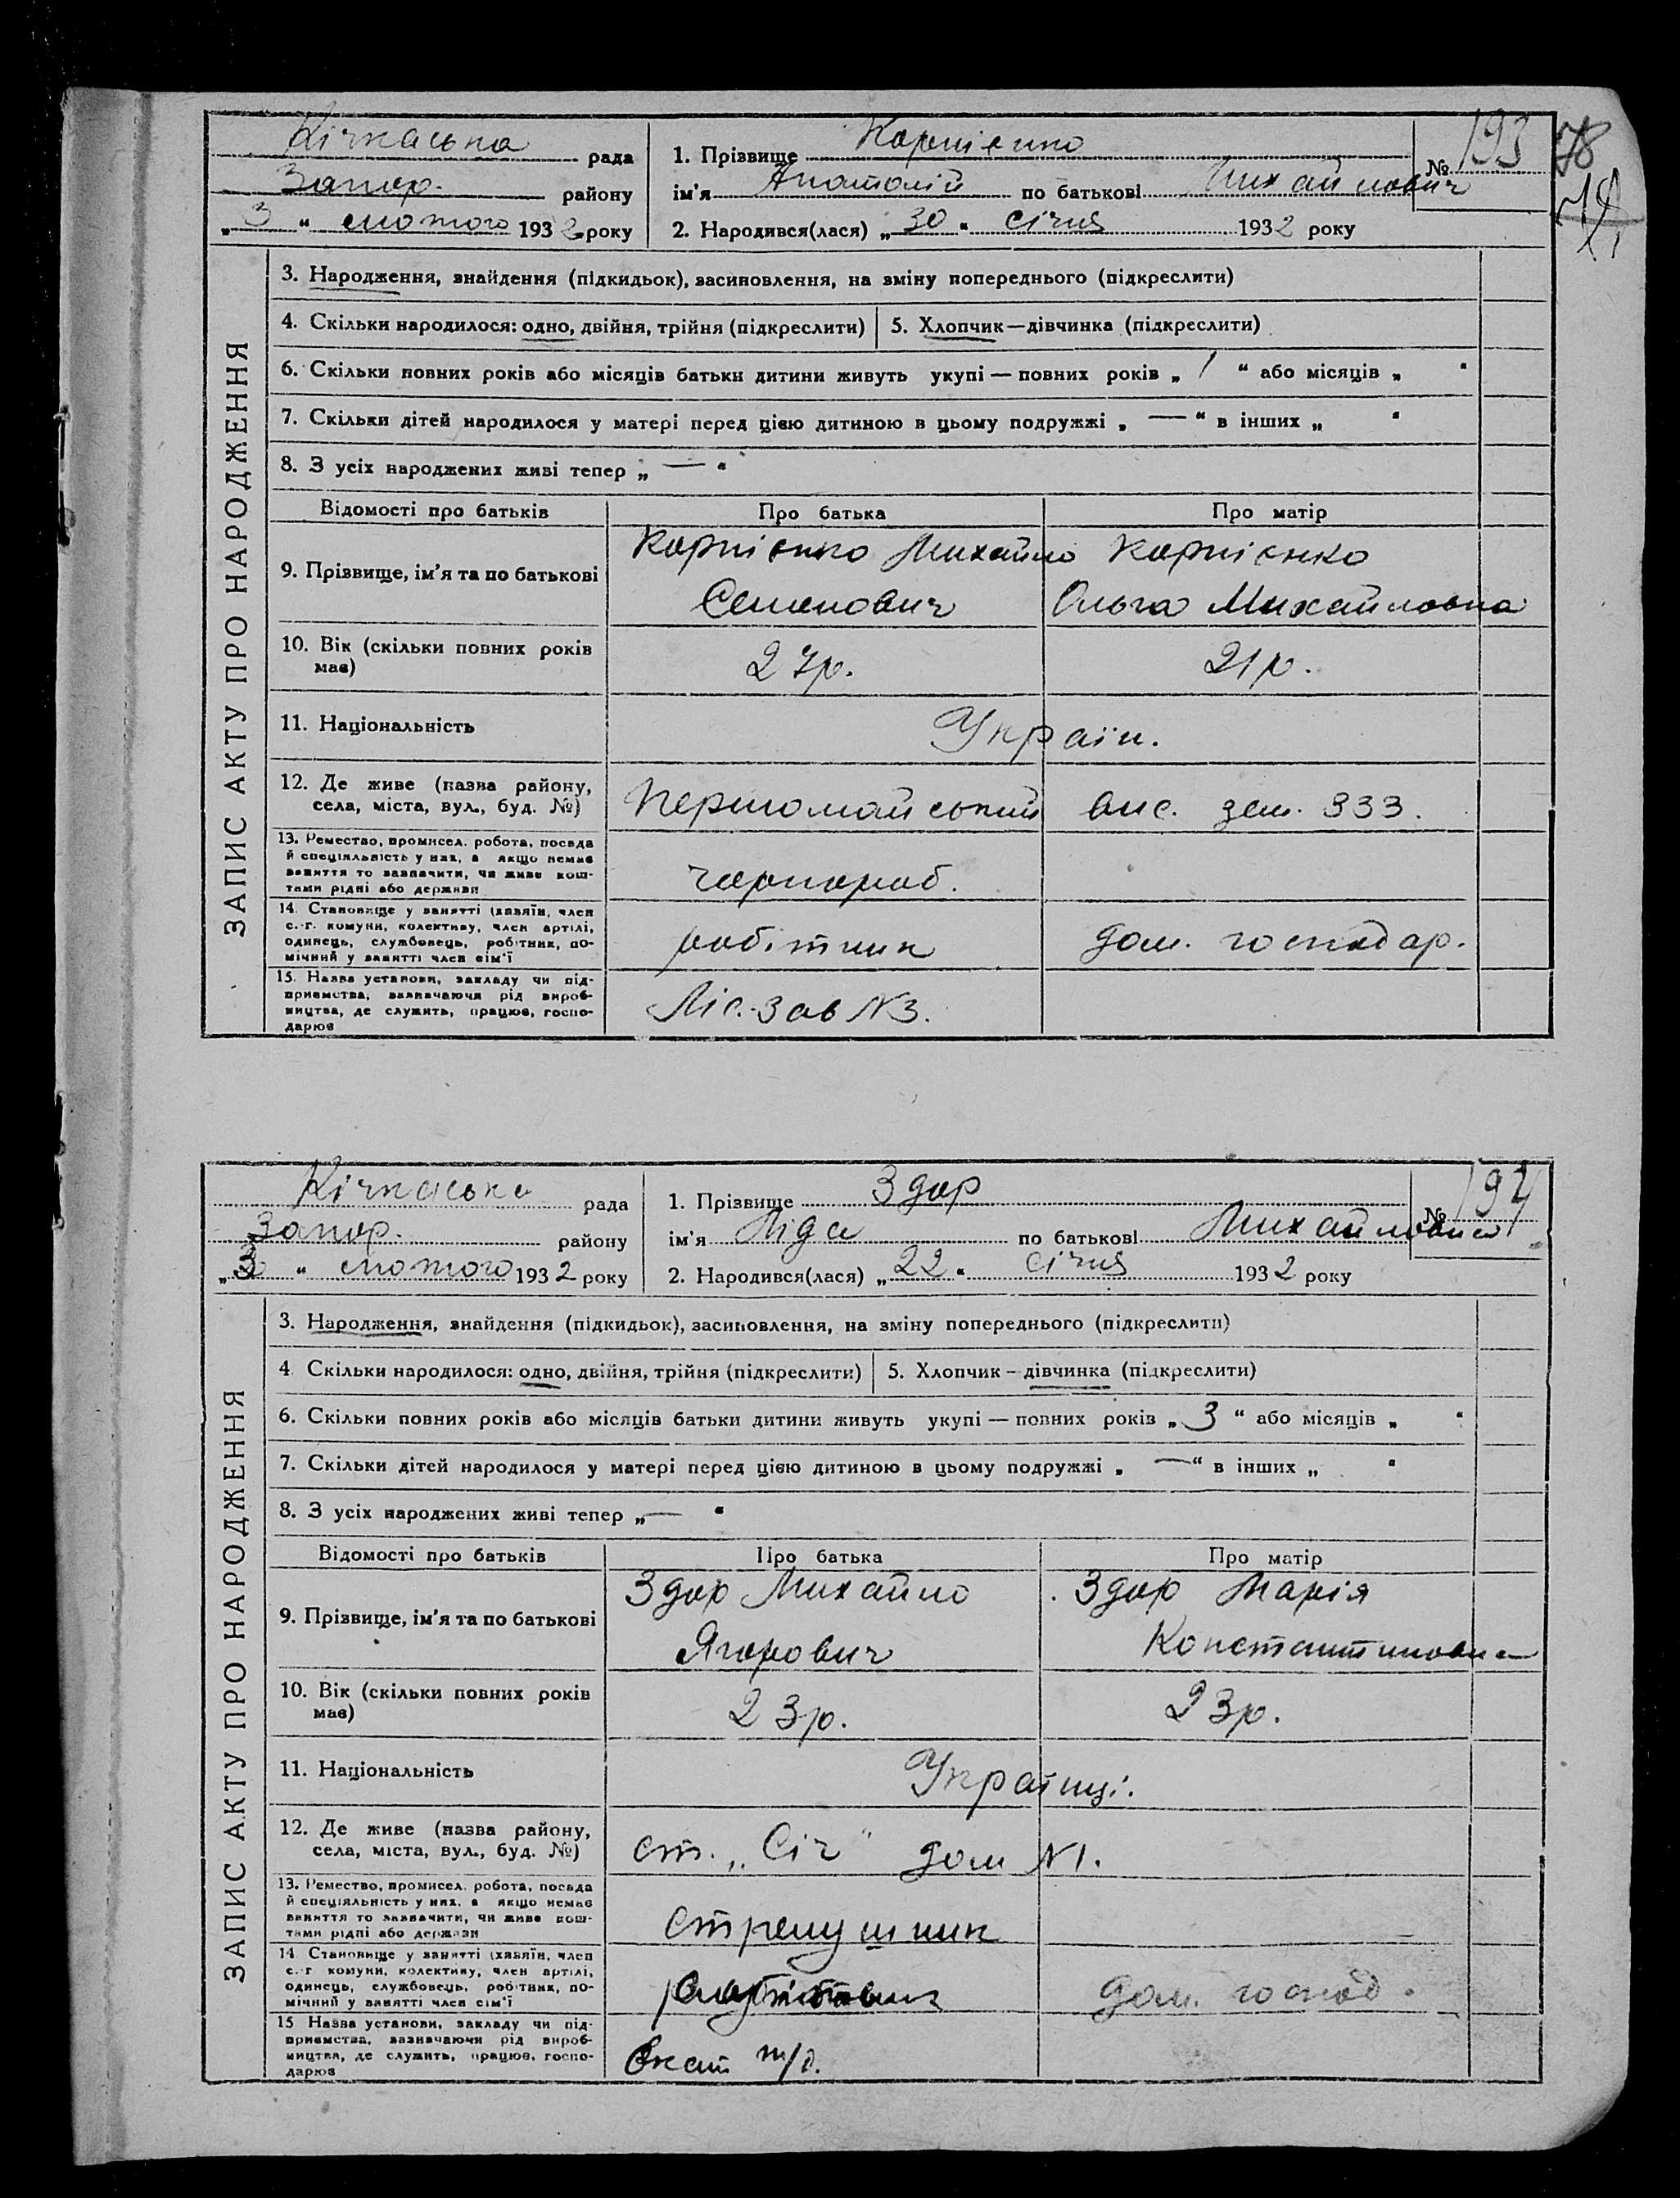 Кічкаська рада
Запор. району
„3“ лютого 1932 року
1. Прізвище Корнієнко
№ 193
78
ім'я Анатолій по батькові Михайлович
2. Народився(лася) „30“ січня 1932 року
ЗАПИС АКТУ ПРО НАРОДЖЕННЯ
3. Народження, знайдення (підкидьок), засиновлення, на зміну попереднього (підкреслити)
4. Скільки народилося: одно, двійня, трійня (підкреслити)
5. Хлопчик—дівчинка (підкреслити)
6. Скільки повних років або місяців батьки дитини живуть укупі — повних років „ 1 “ або місяців „ “
7. Скільки дітей народилося у матері перед цією дитиною в цьому подружжі „ — “ в інших „ “
8. З усіх народжених живі тепер „ — “
Відомості про батьків Про батька Про матір
9. Прізвище, ім'я та по батькові
Корнієнко Михайло
Семенович
Корнієнко
Ольга Михайловна
10. Вік (скільки повних років
має)
27р. 21р.
11. Національність Україн.
12. Де живе (назва району,
села, міста, вул., буд. №)
Першомайський вис. зем. 333.
13. Ремество, промисел. робота, посада
й спеціяльність у них, а якщо немає
заняття то зазначити, чи живе кош-
тами рідні або держави
чорнороб.
14. Становище у занятті (хазяїн, член
с.-г. комуни, колективу, член артілі,
одинець, службовець, робітник, по-
мічний у занятті член сім'ї
робітник дом. господар.
15. Назва установи, закладу чи під-
приємства, зазначаючи рід вироб-
ництва, де служить, працює, госпо-
дарює
Ліс.-Зав №3.
Кічкаська рада
Запор. району
„3“ лютого 1932 року
1. Прізвище Здор
№ 194
ім'я Ліда по батькові Михайловна
2. Народився(лася) „22“ січня 1932 року
ЗАПИС АКТУ ПРО НАРОДЖЕННЯ
3. Народження, знайдення (підкидьок), засиновлення, на зміну попереднього (підкреслити)
4. Скільки народилося: одно, двійня, трійня (підкреслити)
5. Хлопчик—дівчинка (підкреслити)
6. Скільки повних років або місяців батьки дитини живуть укупі — повних років „ 3 “ або місяців „ “
7. Скільки дітей народилося у матері перед цією дитиною в цьому подружжі „ — “ в інших „ “
8. З усіх народжених живі тепер „ — “
Відомості про батьків Про батька Про матір
9. Прізвище, ім'я та по батькові
Здор Михайло
Ягорович
Здор Марія
Константиновна
10. Вік (скільки повних років
має)
23р. 23р.
11. Національність Українці.
12. Де живе (назва району,
села, міста, вул., буд. №)
ст. „Січ“ дом №1.
13. Ремество, промисел. робота, посада
й спеціяльність у них, а якщо немає
заняття то зазначити, чи живе кош-
тами рідні або держави
стрелушник
14. Становище у занятті (хазяїн, член
с.-г. комуни, колективу, член артілі,
одинець, службовець, робітник, по-
мічний у занятті член сім'ї
дом. господ.
15. Назва установи, закладу чи під-
приємства, зазначаючи рід вироб-
ництва, де служить, працює, госпо-
дарює
Окат т/д.